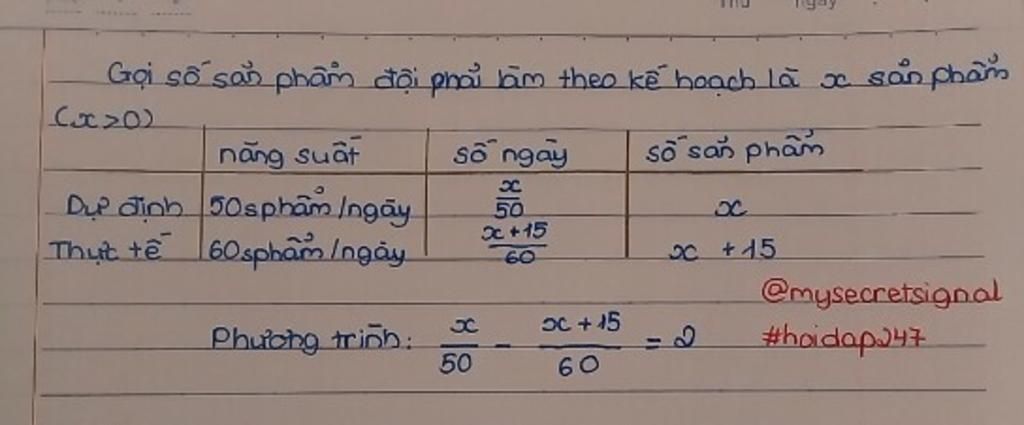 Thứ ngày
Gọi số sản phẩm đội phải làm theo kế hoạch là x sản phẩm
(x>0)
năng suất số ngày số sản phẩm
Dự định 50sphẩm/ngày x/50 x
Thực tế 60sphẩm/ngày x+15/60 x +15
@mysecretsignal
Phương trình: x/50 - x+15/60 = 2 #hoidap247